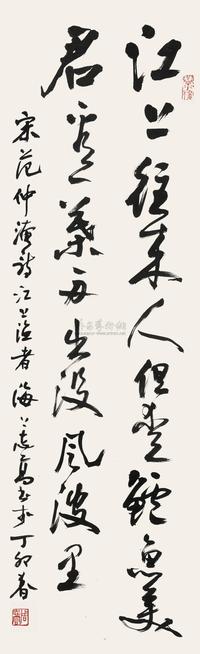 江上往来人但爱鲈鱼美
君看一叶舟出没风波里
宋范仲淹诗江上渔者海上志高书于丁卯春